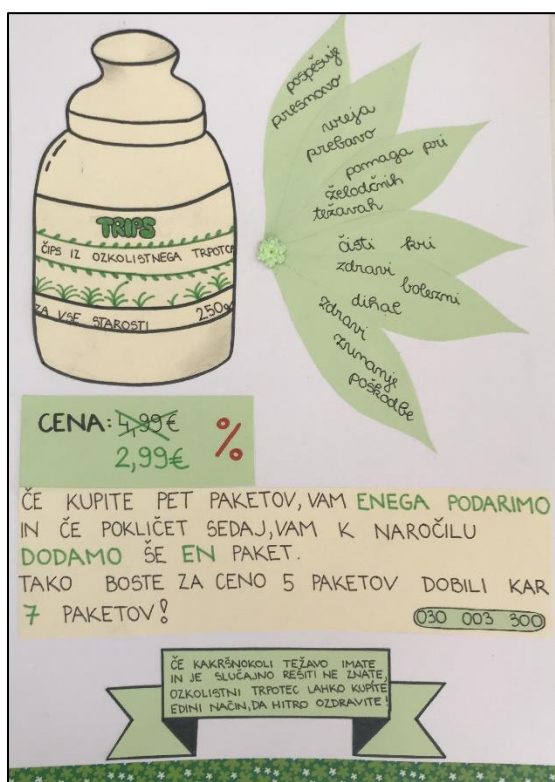 TRIPS
ČIPS IZ OZKOLISTNEGA TRPOTCA
ZA VSE STAROSTI
250g
pospešuje
presnovo
ureja
prebavo
pomaga pri
želodčnih
težavah
čisti kri
zdravi bolezni
dihal
zdravi
zunanje
poškodbe
CENA: 4,99€
2,99€
%
ČE KUPITE PET PAKETOV, VAM ENEGA PODARIMO
IN ČE POKLIČET SEDAJ, VAM K NAROČILU
DODAMO ŠE EN PAKET.
TAKO BOSTE ZA CENO 5 PAKETOV DOBILI KAR
7 PAKETOV!
030 003 300
ČE KAKRŠNOKOLI TEŽAVO IMATE
IN JE SLUČAJNO REŠITI NE ZNATE,
OZKOLISTNI TRPOTEC LAHKO KUPITE,
EDINI NAČIN, DA HITRO OZDRAVITE!